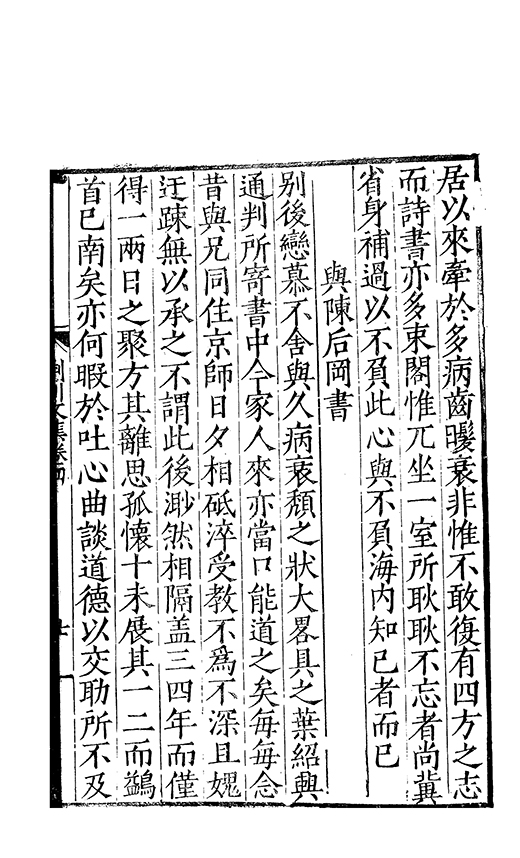 居以來牽於多病齒髮衰非惟不敢復有四方之志
而詩書亦多束閣惟兀坐一室所耿耿不忘者尚冀
省身補過以不負此心與不負海內知已者而已
與陳后岡書
別後戀慕不舍與久病衰頽之狀大畧具之葉紹興
通判所寄書中今家人來亦當口能道之矣每每念
昔與兄同住京師日夕相砥淬受教不為不深且媿
迂踈無以承之不謂此後渺然相隔盖三四年而僅
得一兩日之聚方其離思孤懷十未展其一二而鷁
首已南矣亦何暇於吐心曲談道德以交助所不及
荆川文集卷四